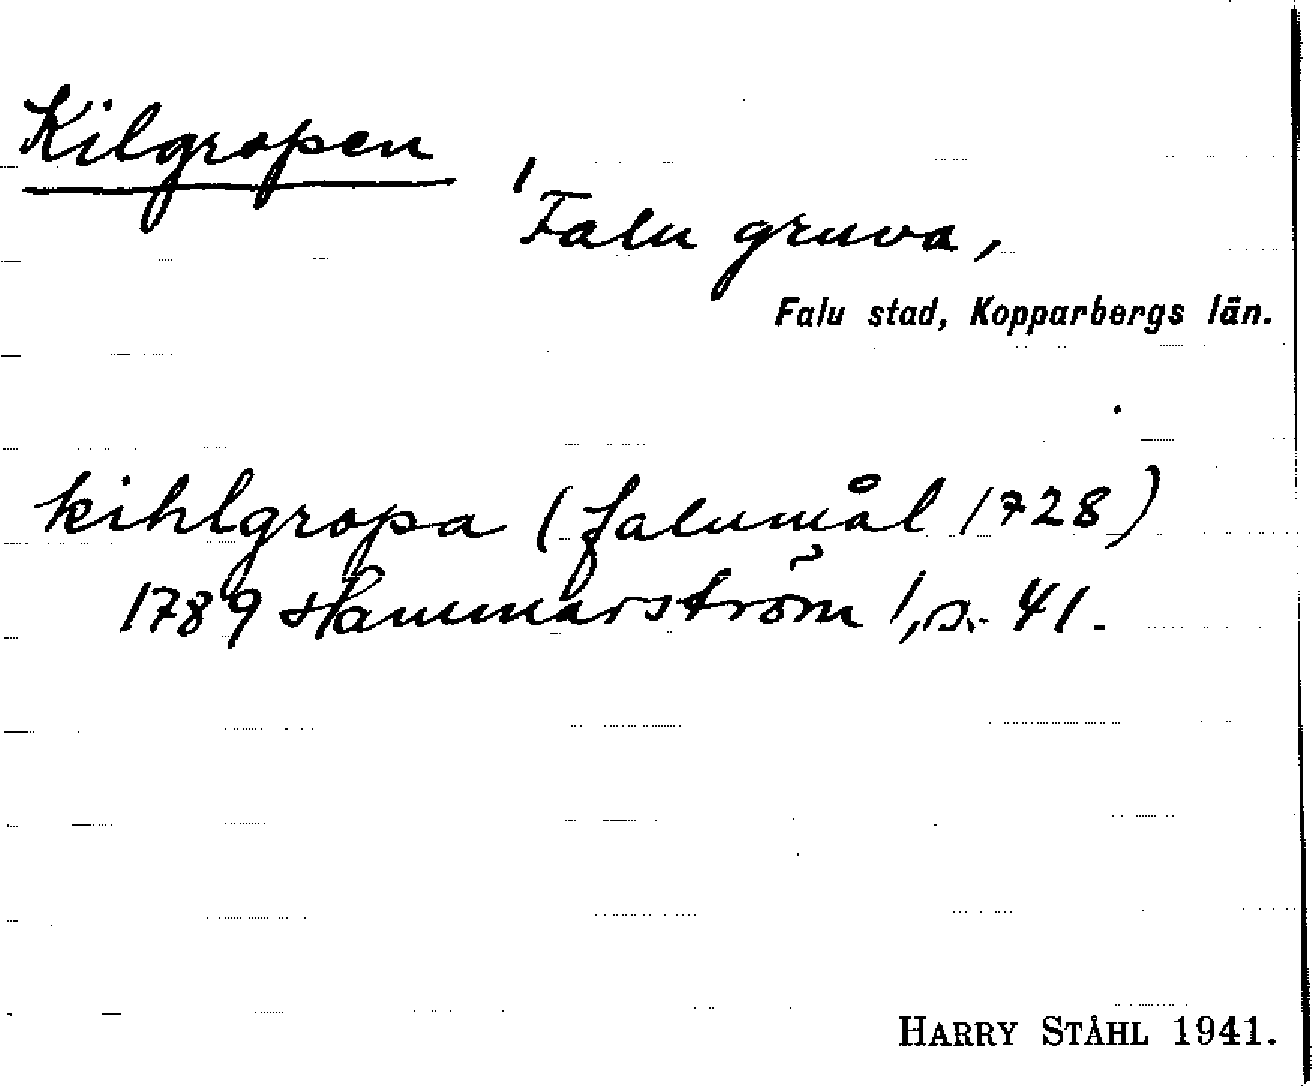 Kilgropen,
Falu gruva,
Falu stad, Kopparbergs län.
kihlgropa (falumål 1728)
1789 Hammarström 1, s. 41.
HARRY STÅHL 1941.